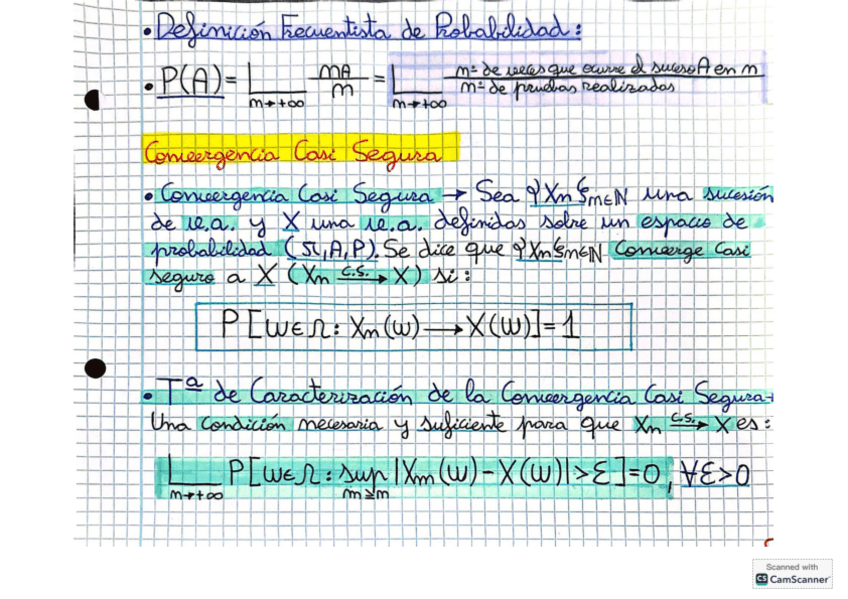 • Definición Frecuentista de Probabilidad:
• P(A) = L n→+∞ nA/n = L n→+∞ nº de veces que ocurre el suceso A en n / nº de pruebas realizadas
Convergencia Casi Segura
• Convergencia Casi Segura → Sea {Xn}n∈ℕ una sucesión
de v.a. y X una v.a. definidas sobre un espacio de
probabilidad (Ω,A,P). Se dice que {Xn}n∈ℕ Converge Casi
seguro a X (Xn c.s.→ X) si:
P[ω∈Ω: Xn(ω)→X(ω)]=1
• Tª de Caracterización de la Convergencia Casi Segura→
Una condición necesaria y suficiente para que Xn c.s.→ X es:
L n→+∞ P[ω∈Ω: sup m≥n |Xm(ω)-X(ω)|>ε]=0, ∀ε>0
Scanned with
CS CamScanner